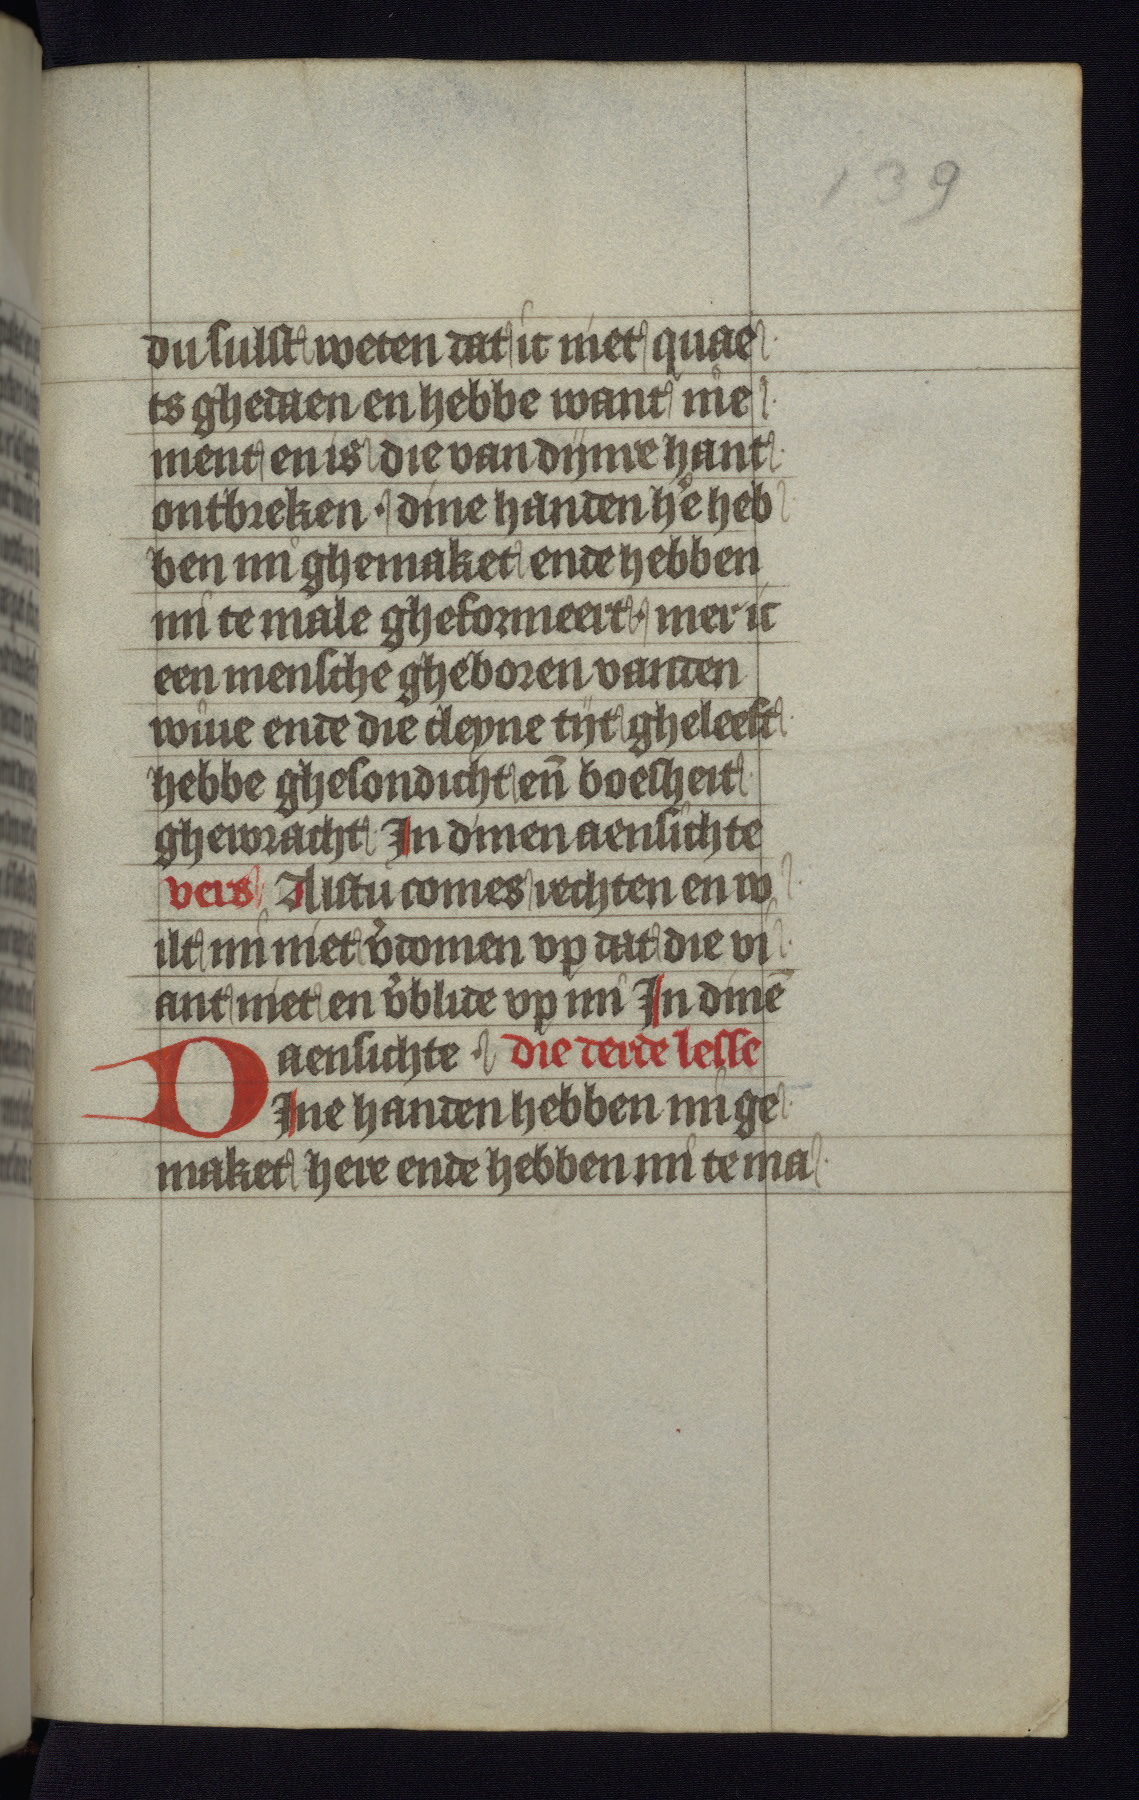 139
du sulst weten dat ic niet quae
ts ghedaen en hebbe want nie
ment en is die van dijnre hant
ontbreken · dine handen hˀe heb
ben mi ghemaket ende hebben
mi te male gheformeert · mer ic
een mensche gheboren vanden
wiue ende die cleyne tijt gheleeft
hebbe ghesondicht en̄ boesheit
ghewracht In dinen aensichte
vers Alstu comes rechten en w
ilt mi niet v̓domen vp dat die vi
ant niet en v̓blide vp mi In dinē
aensichte · die derde lesse
DIne handen hebben mi ge
maket here ende hebben mi te ma